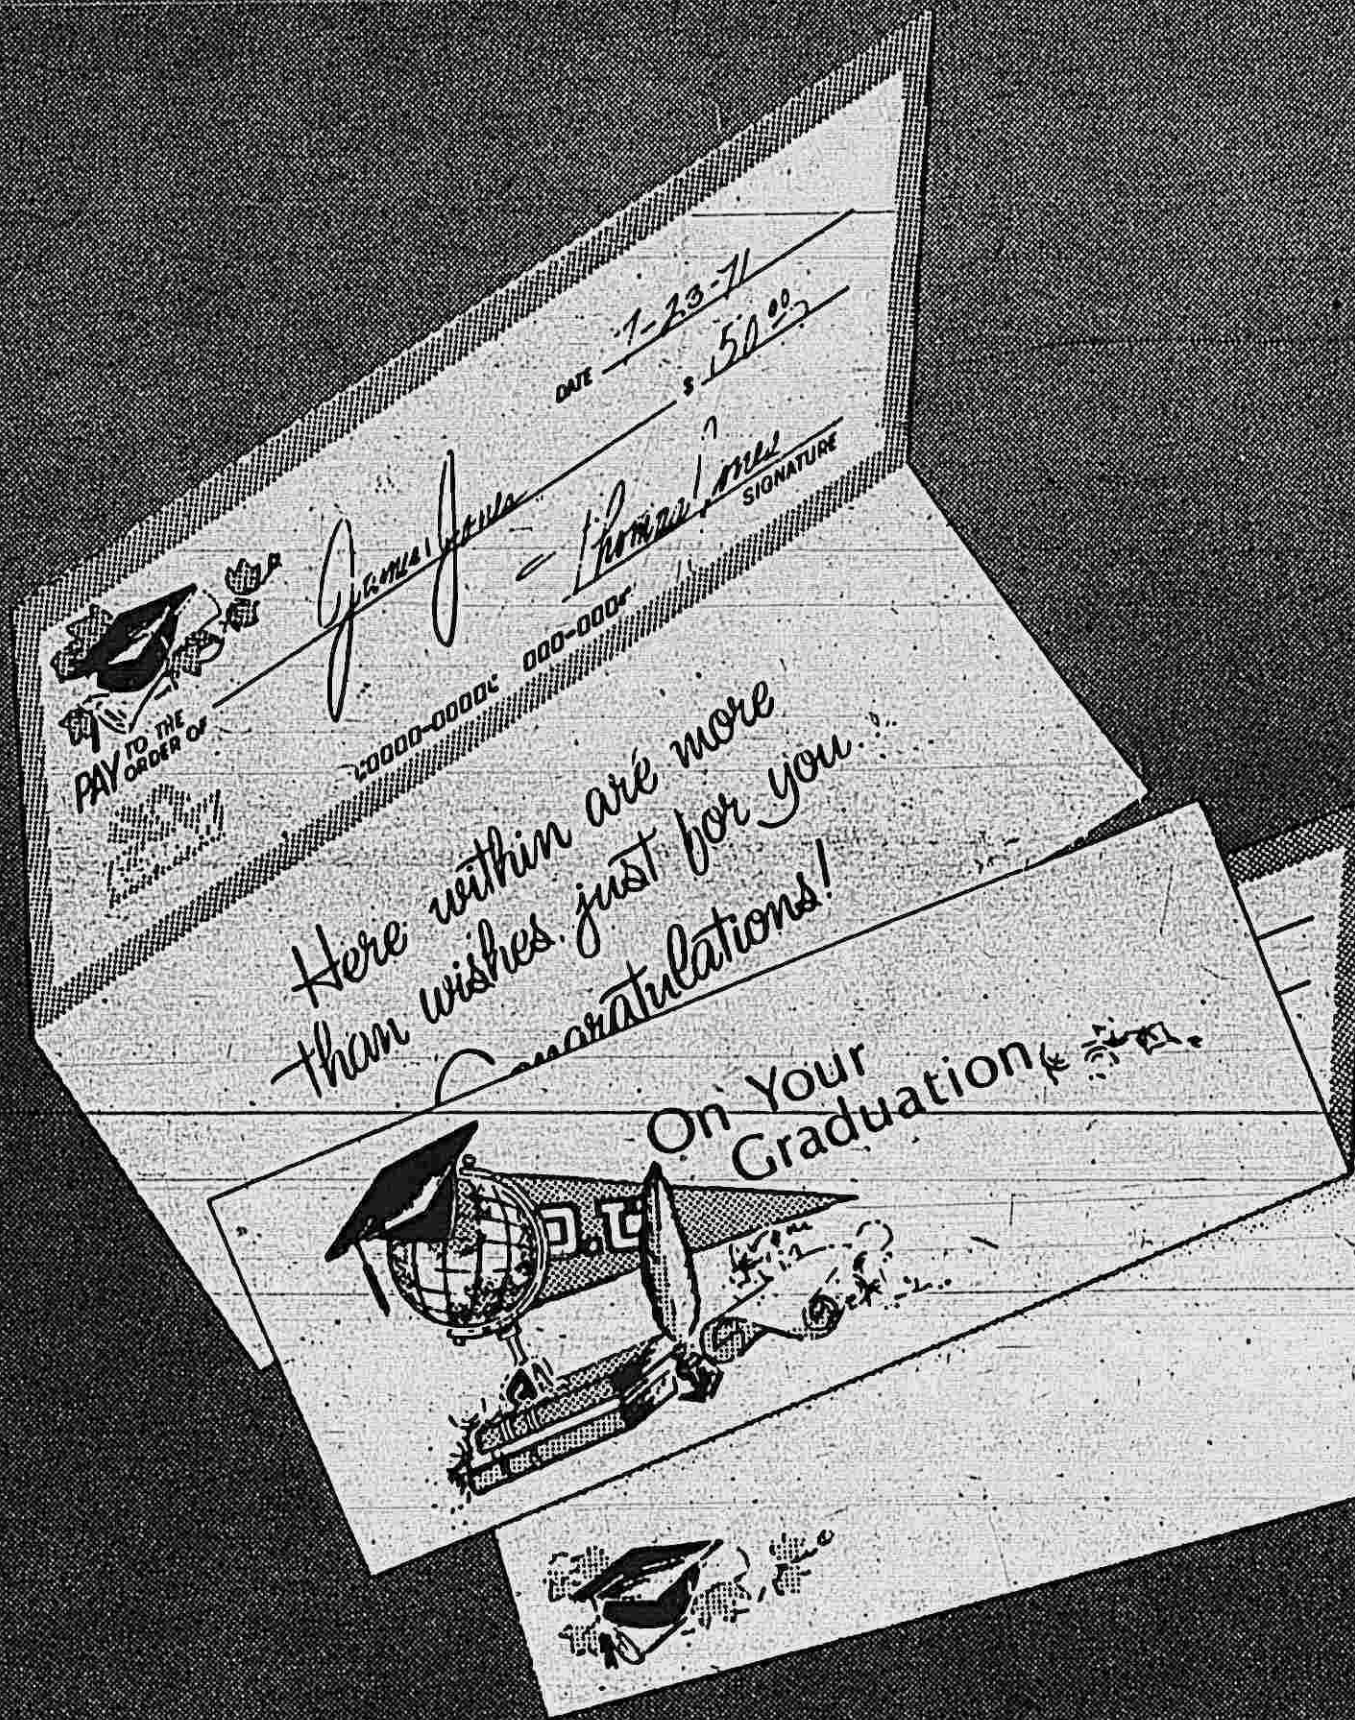 DATE 7-23-71
$ 50.00
James Jones
PAY TO THE ORDER OF
Thomas Jones
SIGNATURE
00000-0000 000-000
Here within are more
than wishes just for you...
Congratulations!
On Your
Graduation